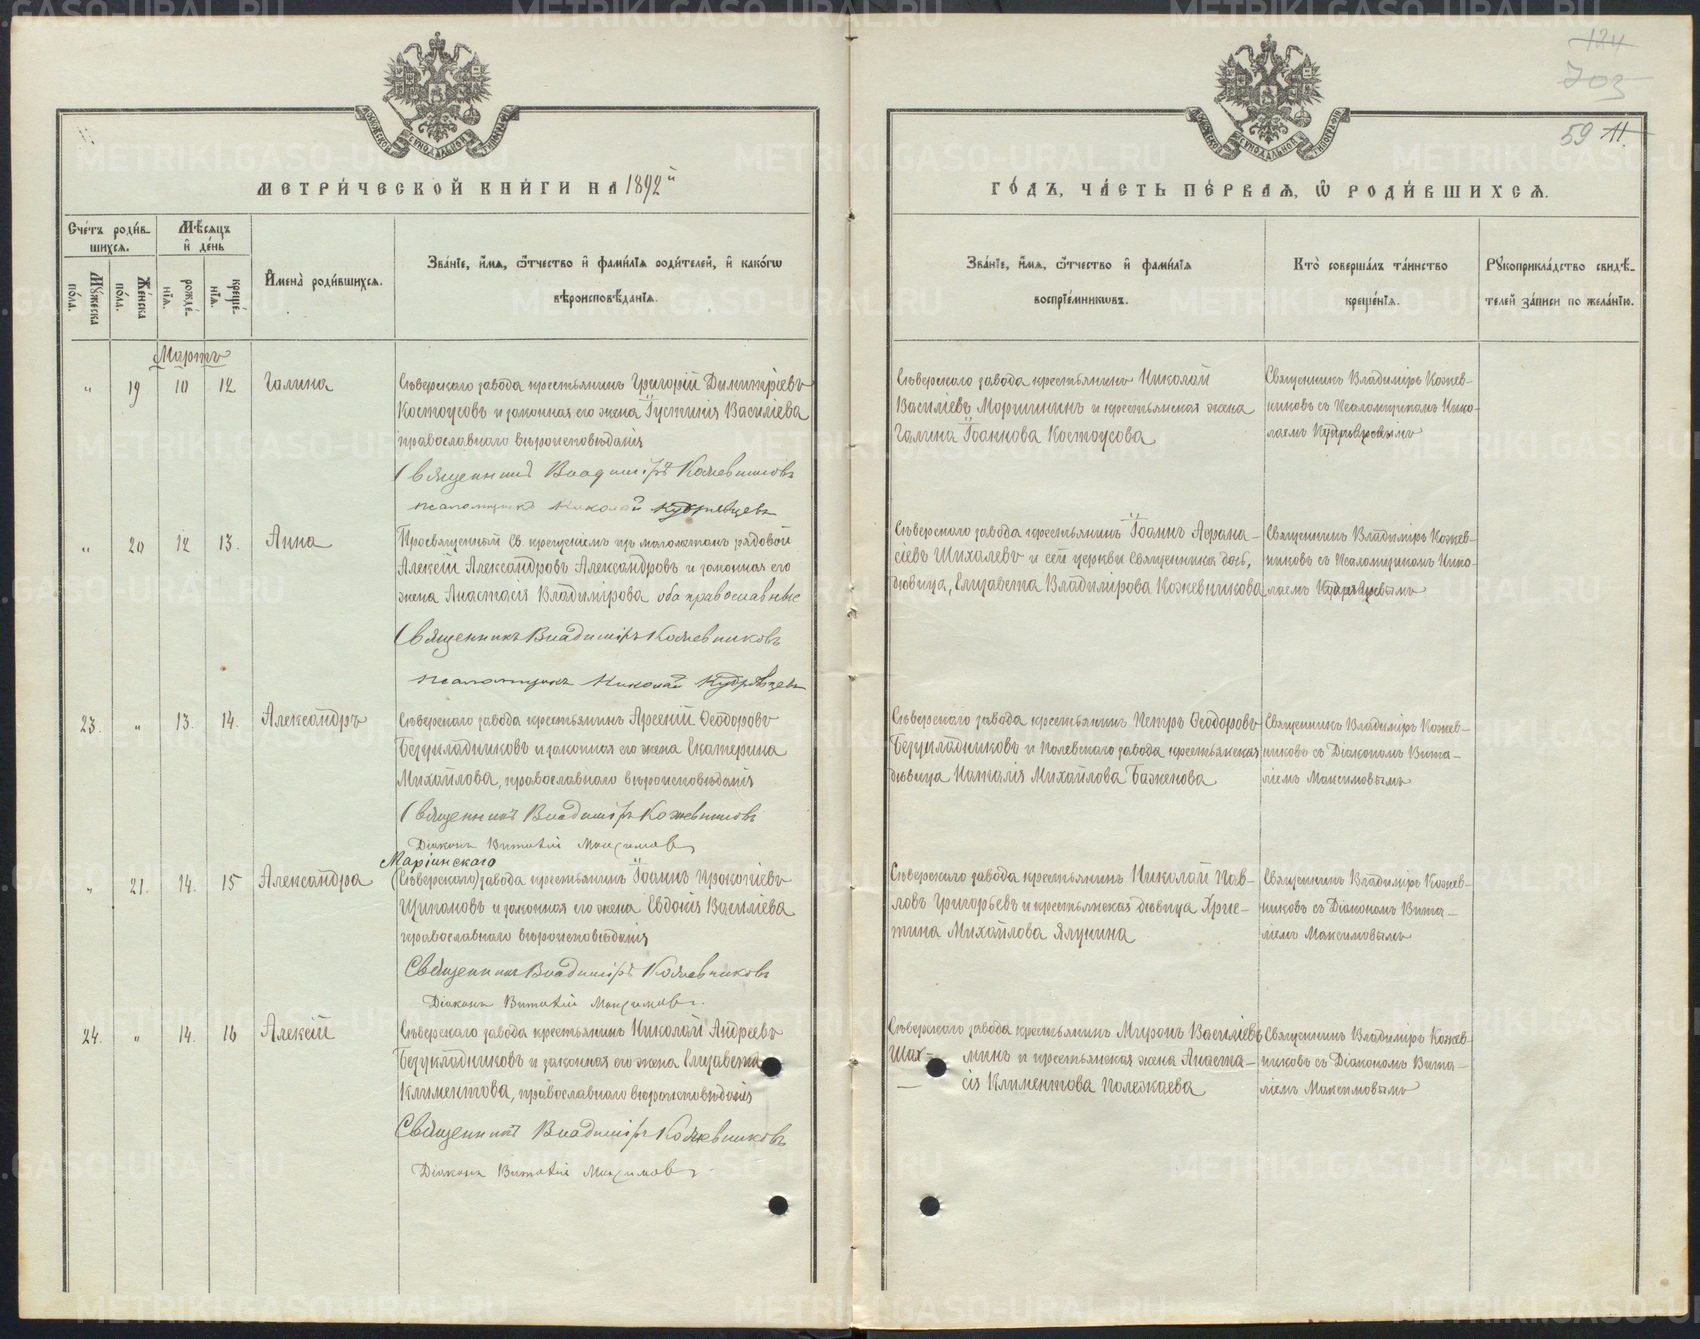 124
703
59 11.
МЕТРИ́ЧЕСКОЙ КНИ́ГИ НА 1892й
ГО́ДЪ, ЧА́СТЬ ПЕ́РВАѦ, Ѡ РОДИ́ВШИХСѦ.
Сче́тъ роди́в-
шихсѧ.
Мѣ́сѧцъ
и҆ де́нь
Мꙋ́жеска
по́ла.
Же́нска
по́ла.
рожде́-
нїѧ.
креще́-
нїѧ.
И҆мена̀ роди́вшихсѧ.
Зва́нїе, и҆́мѧ, ѻ҆́тчество и҆ фами́лїѧ роди́телей, и҆ како́гѡ
вѣроисповѣ́данїѧ.
Зва́нїе, и҆́мѧ, ѻ҆́тчество и҆ фами́лїѧ
воспрїе́мникѡвъ.
Кто̀ соверша́лъ та́инство
креще́нїѧ.
Рꙋкоприкла́дство свидѣ́-
телей за́писи по жела́нїю.
Мартъ
" 19 10 12 Галина
Сѣверскаго завода крестьянинъ Григорій Димитріевъ
Костоусовъ и законная его жена Іустинія Василіева
православнаго вѣроисповѣданія
Священникъ Владиміръ Кожевниковъ
псаломщикъ Николай Кудрявцевъ
Сѣверскаго завода крестьянинъ Николай
Василіевъ Моршининъ и крестьянская жена
Галина Іоаннова Костоусова
Священникъ Владиміръ Кожев-
никовъ съ Псаломщикомъ Нико-
лаемъ Кудрявцевымъ
" 20 12 13. Анна
Просвященный Св. крещеніемъ изъ магометанъ рядовой
Алексій Александровъ Александровъ и законная его
жена Анастасія Владимірова оба православные
Священникъ Владиміръ Кожевниковъ
псаломщикъ Николай Кудрявцевъ
Сѣверскаго завода крестьянинъ Іоаннъ Афана-
сіевъ Шихалевъ и сей церкви Священника дочь,
дѣвица, Елизавета Владимірова Кожевникова
Священникъ Владиміръ Кожев-
никовъ съ Псаломщикомъ Нико-
лаемъ Кудрявцевымъ
23. " 13. 14. Александръ
Сѣверскаго завода крестьянинъ Арсеній Ѳеодоровъ
Безукладниковъ и законная его жена Екатерина
Михайлова, православнаго вѣроисповѣданія
Священникъ Владиміръ Кожевниковъ
Діаконъ Виталій Максимовъ
Сѣверскаго завода крестьянинъ Петръ Ѳеодоровъ
Безукладниковъ и Полевскаго завода крестьянская
дѣвица Наталія Михайлова Баженова
Священникъ Владиміръ Кожев-
никовъ съ Діакономъ Вита-
ліемъ Максимовымъ
Маріинскаго
" 21. 14. 15 Александра
(Сѣверскаго) завода крестьянинъ Іоаннъ Прокопіевъ
Щипановъ и законная его жена Евдокія Василіева
православнаго вѣроисповѣданія
Священникъ Владиміръ Кожевниковъ
Діаконъ Виталій Максимовъ.
Сѣверскаго завода крестьянинъ Николай Пав-
ловъ Григорьевъ и крестьянская дѣвица Хрис-
тина Михайлова Ялунина
Священникъ Владиміръ Кожев-
никовъ съ Діакономъ Вита-
ліемъ Максимовымъ
24. " 14. 16 Алексій
Сѣверскаго завода крестьянинъ Николай Андреевъ
Безукладниковъ и законная его жена Елизавета
Климентова, православнаго вѣроисповѣданія
Священникъ Владиміръ Кожевниковъ
Діаконъ Виталій Максимовъ.
Сѣверскаго завода крестьянинъ Миронъ Василіевъ
Шах- минъ и крестьянская жена Анаста-
сія Климентова Полежаева
Священникъ Владиміръ Кожев-
никовъ съ Діакономъ Вита-
ліемъ Максимовымъ
METRIKI.GASO-URAL.RU